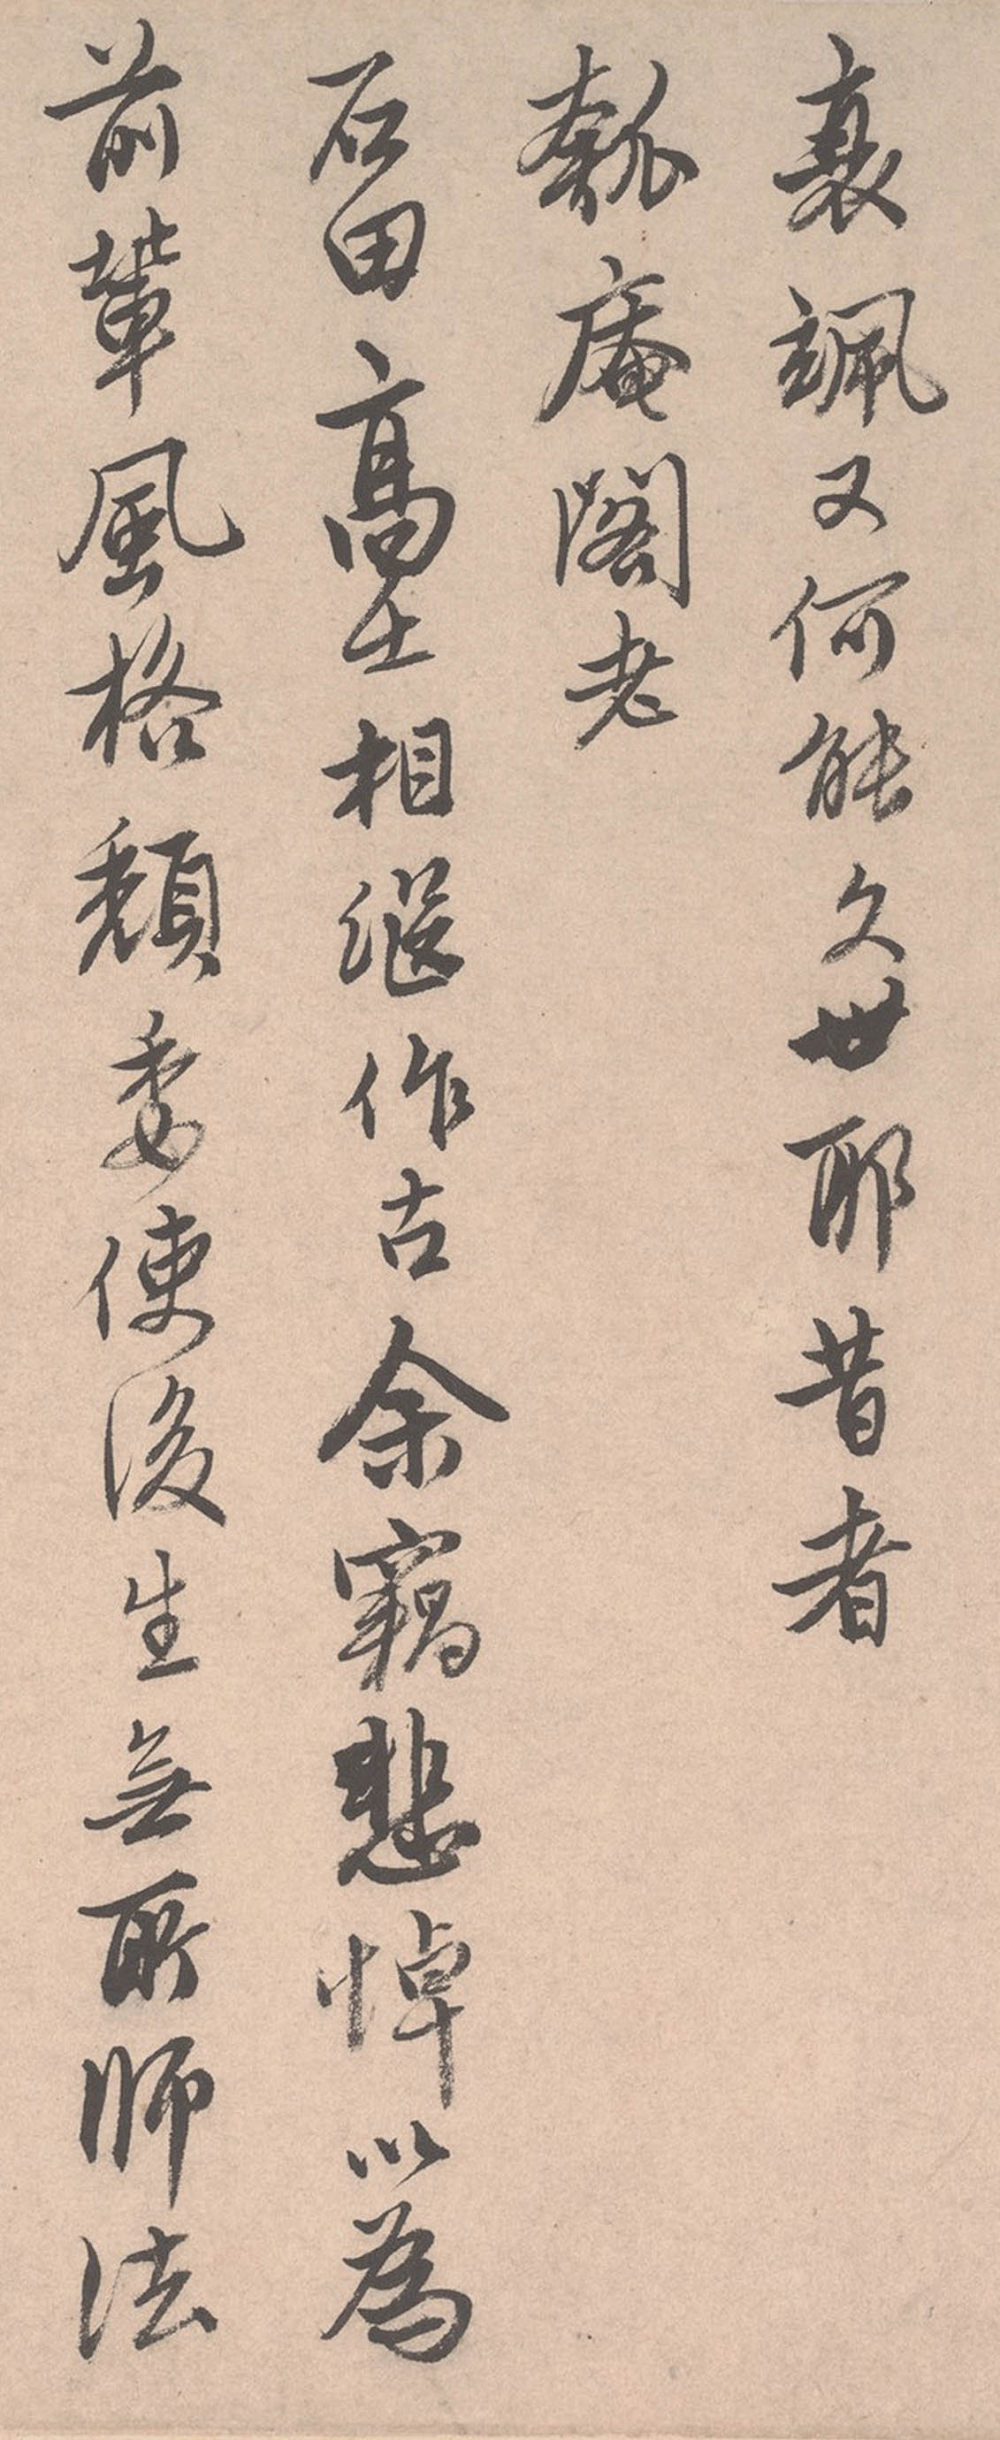 衰颯又何能久世耶昔者
瓠庵閣老
石田高士相繼作古余竊悲悼以為
前輩風格頹委使後生無所師法